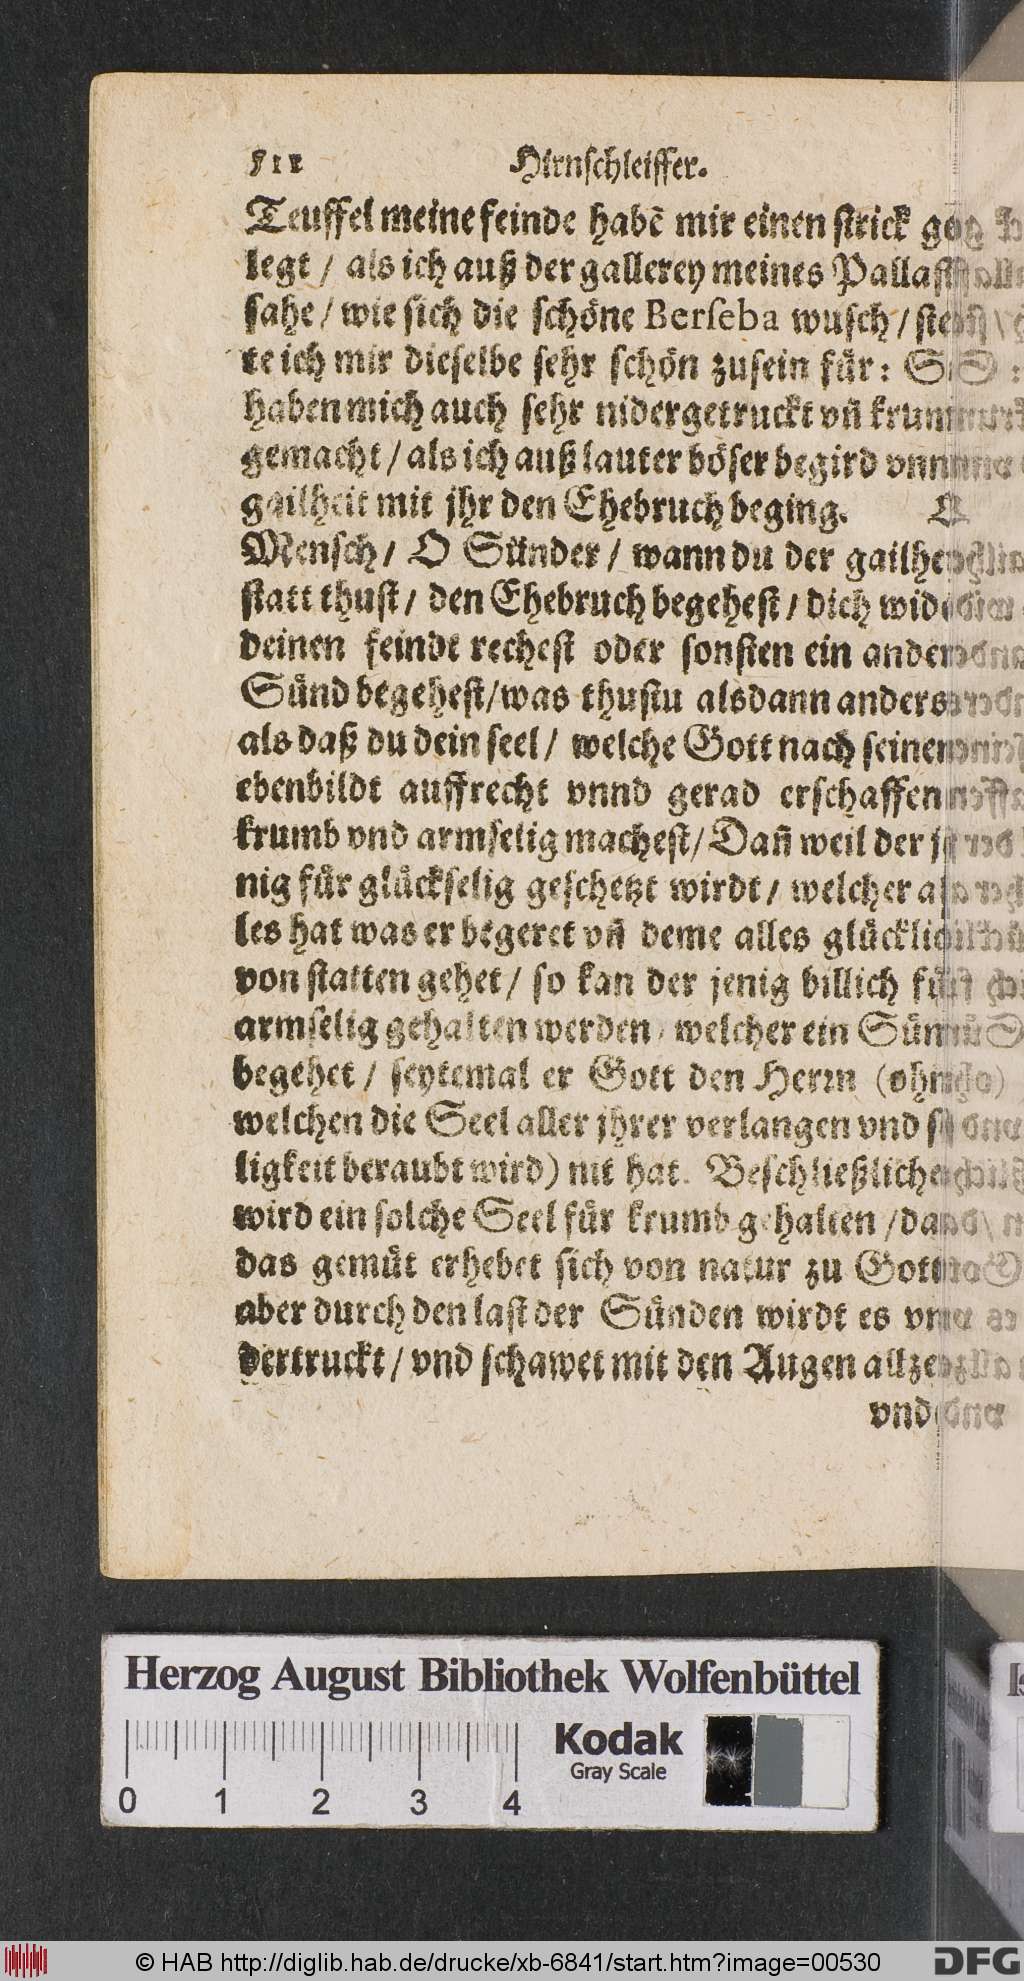 511 Hirnschleiffer.
Teuffel meine feinde habē mir einen strick ge-
legt / als ich auß der gallerey meines Pallast
sahe / wie sich die schöne Berseba wusch / stel-
te ich mir dieselbe sehr schön zusein für: Si
haben mich auch sehr nidergetruckt vñ krum
gemacht / als ich auß lauter böser begird vnn
gailheit mit jhr den Ehebruch beging. O
Mensch / O Sünder / wann du der gailhe
statt thust / den Ehebruch begehest / dich wid
deinen feindt rechest oder sonsten ein ander
Sünd begehest / was thustu alsdann anders
als daß du dein seel / welche Gott nach seinem
ebenbildt auffrecht vnnd gerad erschaffen
krumb vnd armselig machest / Dañ weil der je
nig für glückselig geschetzt wirdt / welcher al
les hat was er begeret vñ deme alles glückli
von statten gehet / so kan der jenig billich für
armselig gehalten werden / welcher ein Sün
begehet / seytemal er Gott den Herrn (ohn
welchen die Seel aller jhrer verlangen vnd se
ligkeit beraubt wird) nit hat. Beschließlich
wird ein solche Seel für krumb gehalten / dan
das gemüt erhebet sich von natur zu Gott
aber durch den last der Sünden wirdt es vn
dertruckt / vnd schawet mit den Augen allze
vnd
Herzog August Bibliothek Wolfenbüttel
0 1 2 3 4
Kodak
Gray Scale
© HAB http://diglib.hab.de/drucke/xb-6841/start.htm?image=00530
DFG